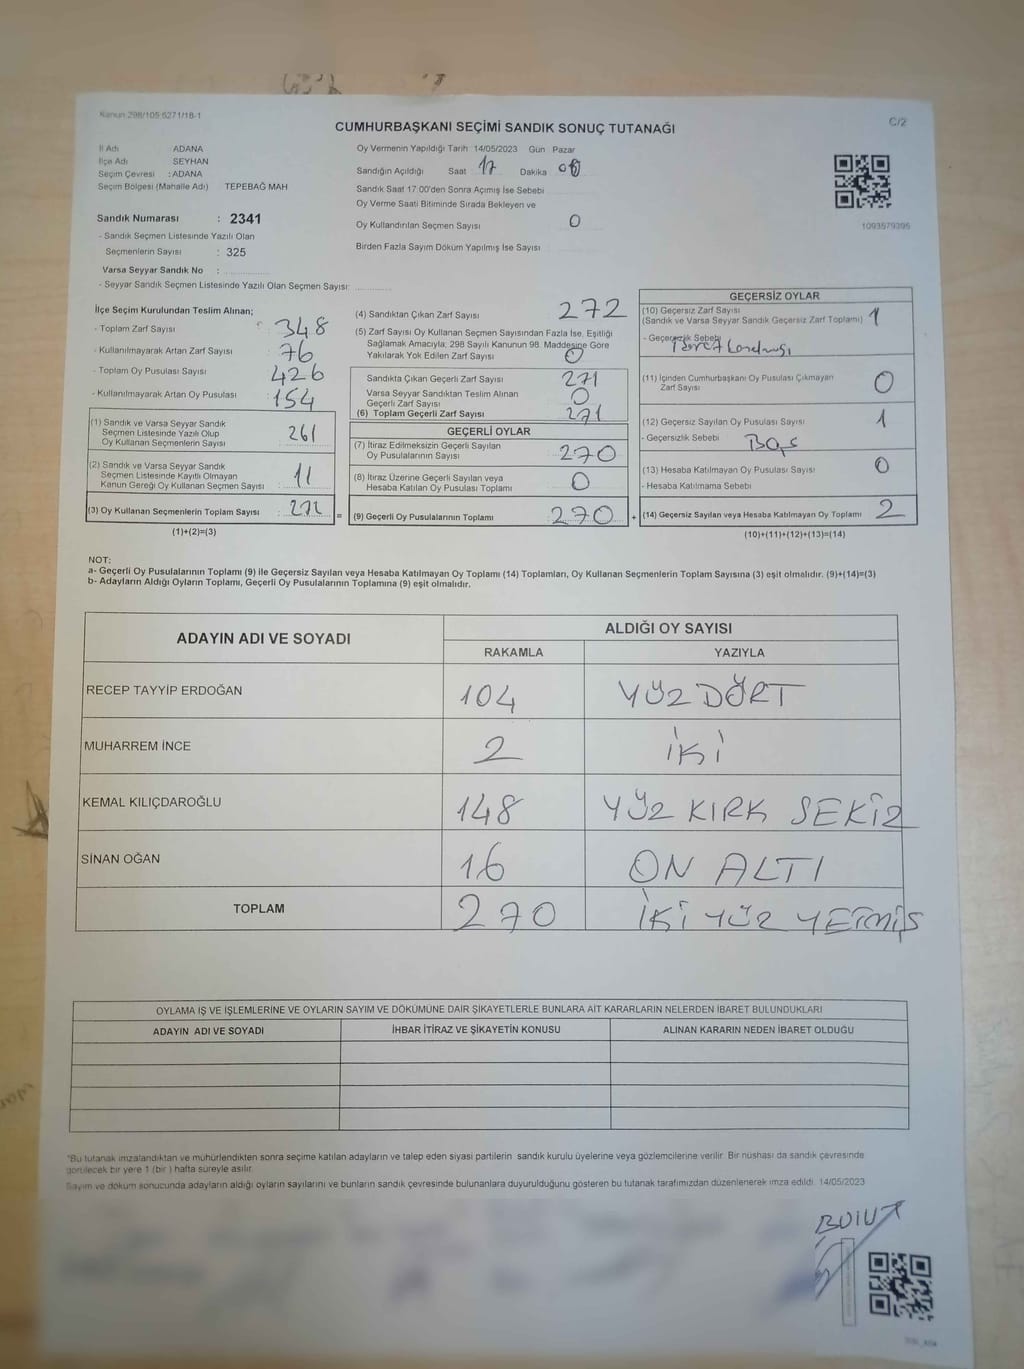 Kanun 298/105 6271/18-1
C/2
CUMHURBAŞKANI SEÇİMİ SANDIK SONUÇ TUTANAĞI
İl Adı ADANA
İlçe Adı SEYHAN
Seçim Çevresi : ADANA
Seçim Bölgesi (Mahalle Adı) TEPEBAĞ MAH
Sandık Numarası : 2341
- Sandık Seçmen Listesinde Yazılı Olan
Seçmenlerin Sayısı : 325
Varsa Seyyar Sandık No :
- Seyyar Sandık Seçmen Listesinde Yazılı Olan Seçmen Sayısı:
Oy Vermenin Yapıldığı Tarih: 14/05/2023 Gün Pazar
Sandığın Açıldığı Saat 17 Dakika
Sandık Saat 17:00'den Sonra Açımış İse Sebebi
Oy Verme Saati Bitiminde Sırada Bekleyen ve
Oy Kullandırılan Seçmen Sayısı 0
Birden Fazla Sayım Döküm Yapılmış İse Sayısı
1093579395
İlçe Seçim Kurulundan Teslim Alınan;
- Toplam Zarf Sayısı : 348
- Kullanılmayarak Artan Zarf Sayısı : 76
- Toplam Oy Pusulası Sayısı : 426
- Kullanılmayarak Artan Oy Pusulası : 154
(1) Sandık ve Varsa Seyyar Sandık
Seçmen Listesinde Yazılı Olup
Oy Kullanan Seçmenlerin Sayısı : 261
(2) Sandık ve Varsa Seyyar Sandık
Seçmen Listesinde Kayıtlı Olmayan
Kanun Gereği Oy Kullanan Seçmen Sayısı : 11
(3) Oy Kullanan Seçmenlerin Toplam Sayısı : 272
(1)+(2)=(3)
(4) Sandıktan Çıkan Zarf Sayısı 272
(5) Zarf Sayısı Oy Kullanan Seçmen Sayısından Fazla İse, Eşitliği
Sağlamak Amacıyla; 298 Sayılı Kanunun 98. Maddesine Göre
Yakılarak Yok Edilen Zarf Sayısı 0
Sandıkta Çıkan Geçerli Zarf Sayısı 271
Varsa Seyyar Sandıktan Teslim Alınan
Geçerli Zarf Sayısı 0
(6) Toplam Geçerli Zarf Sayısı 271
GEÇERLİ OYLAR
(7) İtiraz Edilmeksizin Geçerli Sayılan
Oy Pusulalarının Sayısı 270
(8) İtiraz Üzerine Geçerli Sayılan veya
Hesaba Katılan Oy Pusulası Toplamı 0
= (9) Geçerli Oy Pusulalarının Toplamı 270
GEÇERSİZ OYLAR
(10) Geçersiz Zarf Sayısı
(Sandık ve Varsa Seyyar Sandık Geçersiz Zarf Toplamı) 1
- Geçersizlik Sebebi
(11) İçinden Cumhurbaşkanı Oy Pusulası Çıkmayan
Zarf Sayısı 0
(12) Geçersiz Sayılan Oy Pusulası Sayısı 1
- Geçersizlik Sebebi Boş
(13) Hesaba Katılmayan Oy Pusulası Sayısı 0
- Hesaba Katılmama Sebebi
+ (14) Geçersiz Sayılan veya Hesaba Katılmayan Oy Toplamı 2
(10)+(11)+(12)+(13)=(14)
NOT:
a- Geçerli Oy Pusulalarının Toplamı (9) ile Geçersiz Sayılan veya Hesaba Katılmayan Oy Toplamı (14) Toplamları, Oy Kullanan Seçmenlerin Toplam Sayısına (3) eşit olmalıdır. (9)+(14)=(3)
b- Adayların Aldığı Oyların Toplamı, Geçerli Oy Pusulalarının Toplamına (9) eşit olmalıdır.
ADAYIN ADI VE SOYADI ALDIĞI OY SAYISI
RAKAMLA YAZIYLA
RECEP TAYYİP ERDOĞAN 104 YÜZ DÖRT
MUHARREM İNCE 2 İKİ
KEMAL KILIÇDAROĞLU 148 YÜZ KIRK SEKİZ
SİNAN OĞAN 16 ON ALTI
TOPLAM 270 İKİ YÜZ YETMİŞ
OYLAMA İŞ VE İŞLEMLERİNE VE OYLARIN SAYIM VE DÖKÜMÜNE DAİR ŞİKAYETLERLE BUNLARA AİT KARARLARIN NELERDEN İBARET BULUNDUKLARI
ADAYIN ADI VE SOYADI İHBAR İTİRAZ VE ŞİKAYETİN KONUSU ALINAN KARARIN NEDEN İBARET OLDUĞU
*Bu tutanak imzalandıktan ve mühürlendikten sonra seçime katılan adayların ve talep eden siyasi partilerin sandık kurulu üyelerine veya gözlemcilerine verilir. Bir nüshası da sandık çevresinde
görülecek bir yere 1 (bir ) hafta süreyle asılır.
Sayım ve döküm sonucunda adayların aldığı oyların sayılarını ve bunların sandık çevresinde bulunanlara duyurulduğunu gösteren bu tutanak tarafımızdan düzenlenerek imza edildi. 14/05/2023
BULUT